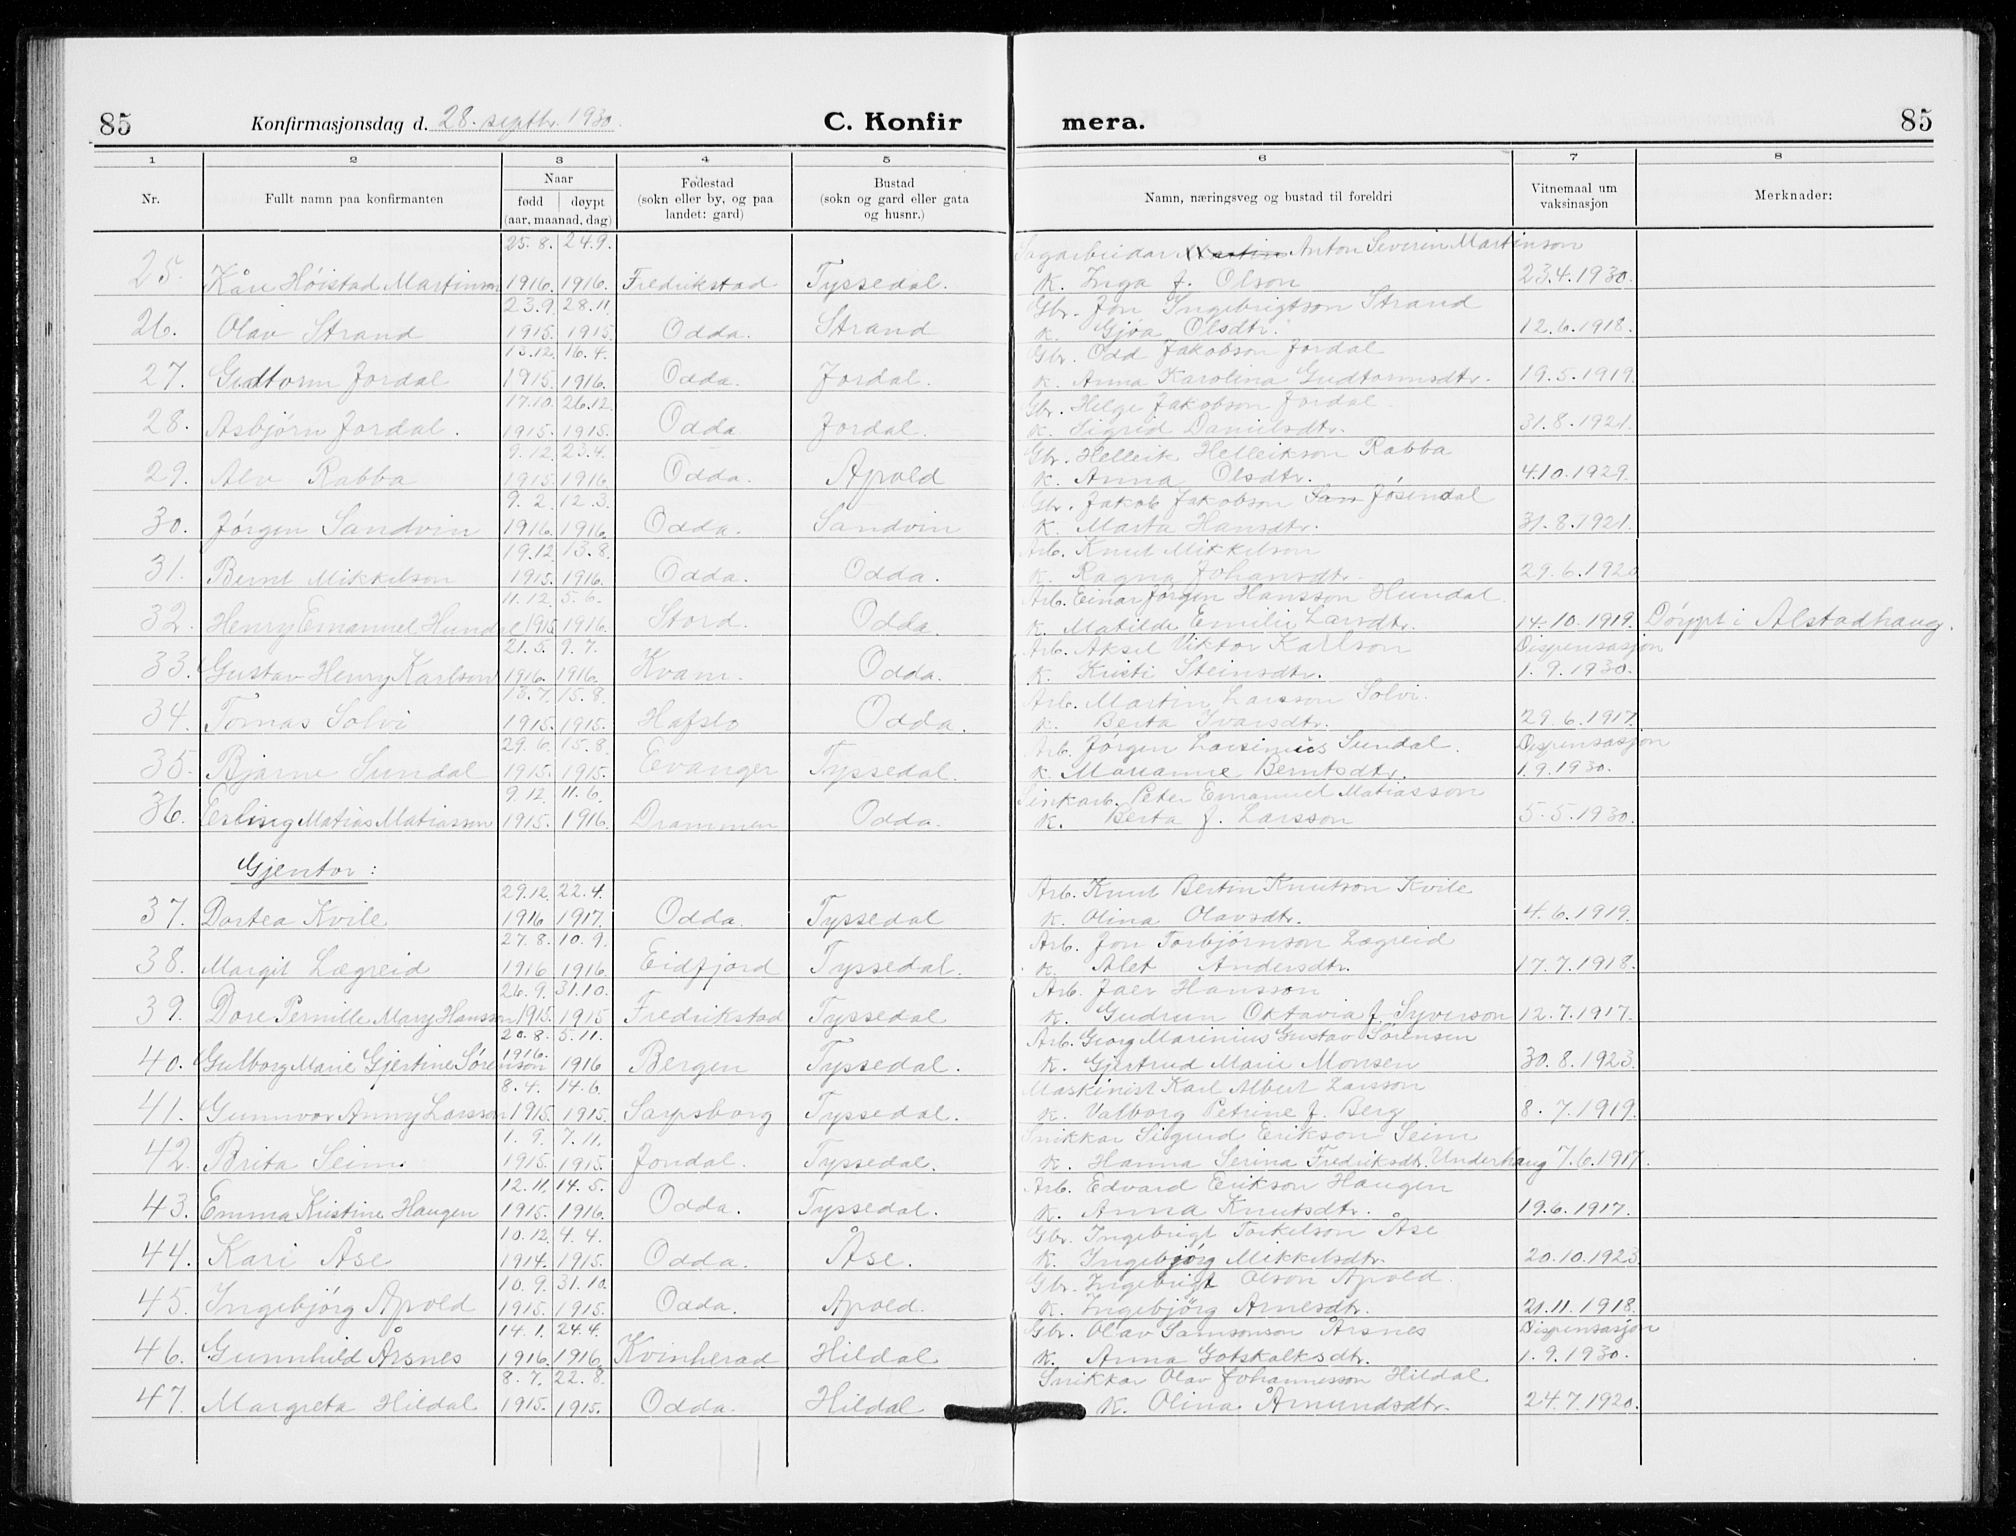 85 Konfirmasjonsdag d. 28. septbr. 1930. C. Konfir mera. 85
1 2 3 4 5 6 7 8
Nr. Fullt namn paa konfirmanten Naar født døypt (aar, maanad, dag) Fødestad (sokn eller by, og paa landet: gard) Bustad (sokn og gard eller gata og husnr.) Namn, næringsveg og bustad til foreldri Vitnemaal um vaksinasjon Merknader:
25. 8. 24. 9. Sagarbeidar Martin Anton Severin Martinson
25. Kåre Høistad Martinson 1916. 1916. Fredrikstad Tyssedal. K. Inga f. Olson 23.4.1930.
23.9. 28.11. Gbr. Jon Ingebrigtson Strand
26. Olav Strand 1915. 1915. Odda. Strand K. Gjøa Olsdtr. 12.6.1918.
13.12. 16.4. Gbr. Odd Jakobson Jordal
27. Gudtorm Jordal 1915. 1916. Odda. Jordal. K. Anna Karolina Gudtormsdtr. 19.5.1919.
17.10. 26.12. Gbr. Helge Jakobson Jordal.
28. Asbjørn Jordal. 1915. 1915. Odda Jordal. K. Sigrid Danielsdtr. 31.8.1921.
9.12. 23.4. Gbr. Helleik Helleikson Rabba
29. Alv Rabba 1915. 1916. Odda. Apold K. Anna Olsdtr. 4.10.1929.
9. 2. 12. 3. Gbr. Jakob Jakobson San Jøsendal
30. Jørgen Sandvin 1916. 1916. Odda. Sandvin K. Marta Hansdtr. 31.8.1921.
19.12. 13.8. Arb. Knut Mikkelson
31. Bernt Mikkelson 1915. 1916. Odda. Odda. K. Ragna Johansdtr. 29.6.1920
11.12. 5.6. Arb. Einar Jørgen Hansson Hundal.
32. Henry Emanuel Hundal 1915 1916. Stord. Odda. K. Matilde Emilie Larsdtr. 14.10.1919. Døypt i Alstadhaug.
21.5. 9.7. Arb. Aksel Viktor Karlson Dispensasjon
33. Gustav Henry Karlson 1916. 1916. Kvam. Odda. K. Kristi Steinsdtr. 1.9.1930.
13.7. 15.8. Arb. Martin Larsson Solvi.
34. Tomas Solvi 1915. 1915. Hafslo Odda. K. Berta Ivarsdtr. 29.6.1917.
29.6. 15.8. Arb. Jørgen Larsinius Sundal. Dispensasjon
35. Bjarne Sundal 1915. 1915. Evanger Tyssedal. K. Marianne Berntsdtr. 1.9.1930.
9.12. 11.6. Sinkarb. Peter Emanuel Matiasson
36. Erling Matias Matiasson 1915. 1916. Drammen Odda. K. Berta f. Larsson 5.5.1930.
Gjentor:
29.12. 22.4. Arb. Knut Bertin Knutson Kvile
37. Dortea Kvile 1916 1917. Odda. Tyssedal K. Olina Olavsdtr. 4.6.1919.
27.8. 10.9. Arb. Jon Torbjørnson Lægreid
38. Margit Lægreid 1916. 1916. Eidfjord Tyssedal. K. Alet Andersdtr. 17.7.1918.
26.9. 31.10. Arb. Jaer Hansson
39. Dore Pernille Mary Hansson 1915. 1915 Fredrikstad Tyssedal K. Gudrun Oktavia f. Syverson 12.7.1917.
20.8. 5.11. Arb. Georg Marinius Gustav Sørensen
40. Gulborg Marie Gjertine Sørenson 1916. 1916 Bergen Tyssedal. K. Gjertrud Marie Monsen 30.8.1923.
8.4. 14.6. Maskinist Karl Albert Larsson
41. Gunnvor Anny Larsson 1915. 1915. Sarpsborg Tyssedal. K. Valborg Petrine f. Berg 8.7.1919.
1.9. 7.11. Snikkar Sigurd Erikson Seim
42. Brita Seim 1915. 1915. Jondal. Tyssedal. K. Hanna Serina Fredriksdtr. Underhaug 7.6.1917.
12.11. 14.5. Arb. Edvard Erikson Haugen
43. Emma Kristine Haugen 1915. 1916. Odda. Tyssedal. K. Anna Knutsdtr. 19.6.1917.
10.12. 4.4. Gbr. Ingebrigt Torkelson Åse
44. Kari Åse 1914. 1915. Odda. Åse. K. Ingebjørg Mikkelsdtr. 20.10.1923
10.9. 31.10. Gbr. Ingebrigt Olson Apold.
45. Ingebjørg Apold 1915. 1915. Odda. Apold. K. Ingebjørg Arnesdtr. 21.11.1918.
14.1. 24.4. Gbr. Olav Samsonson Årsnes Dispensasjon
46. Gunnhild Årsnes 1916. 1916. Kvinherad Hildal K. Anna Gotskalksdtr. 1.9.1930.
8.7. 22.8. Snikkar Olav Johannesson Hildal
47. Margreta Hildal 1915. 1915. Odda. Hildal K. Olina Åmundsdtr. 24.7.1920.